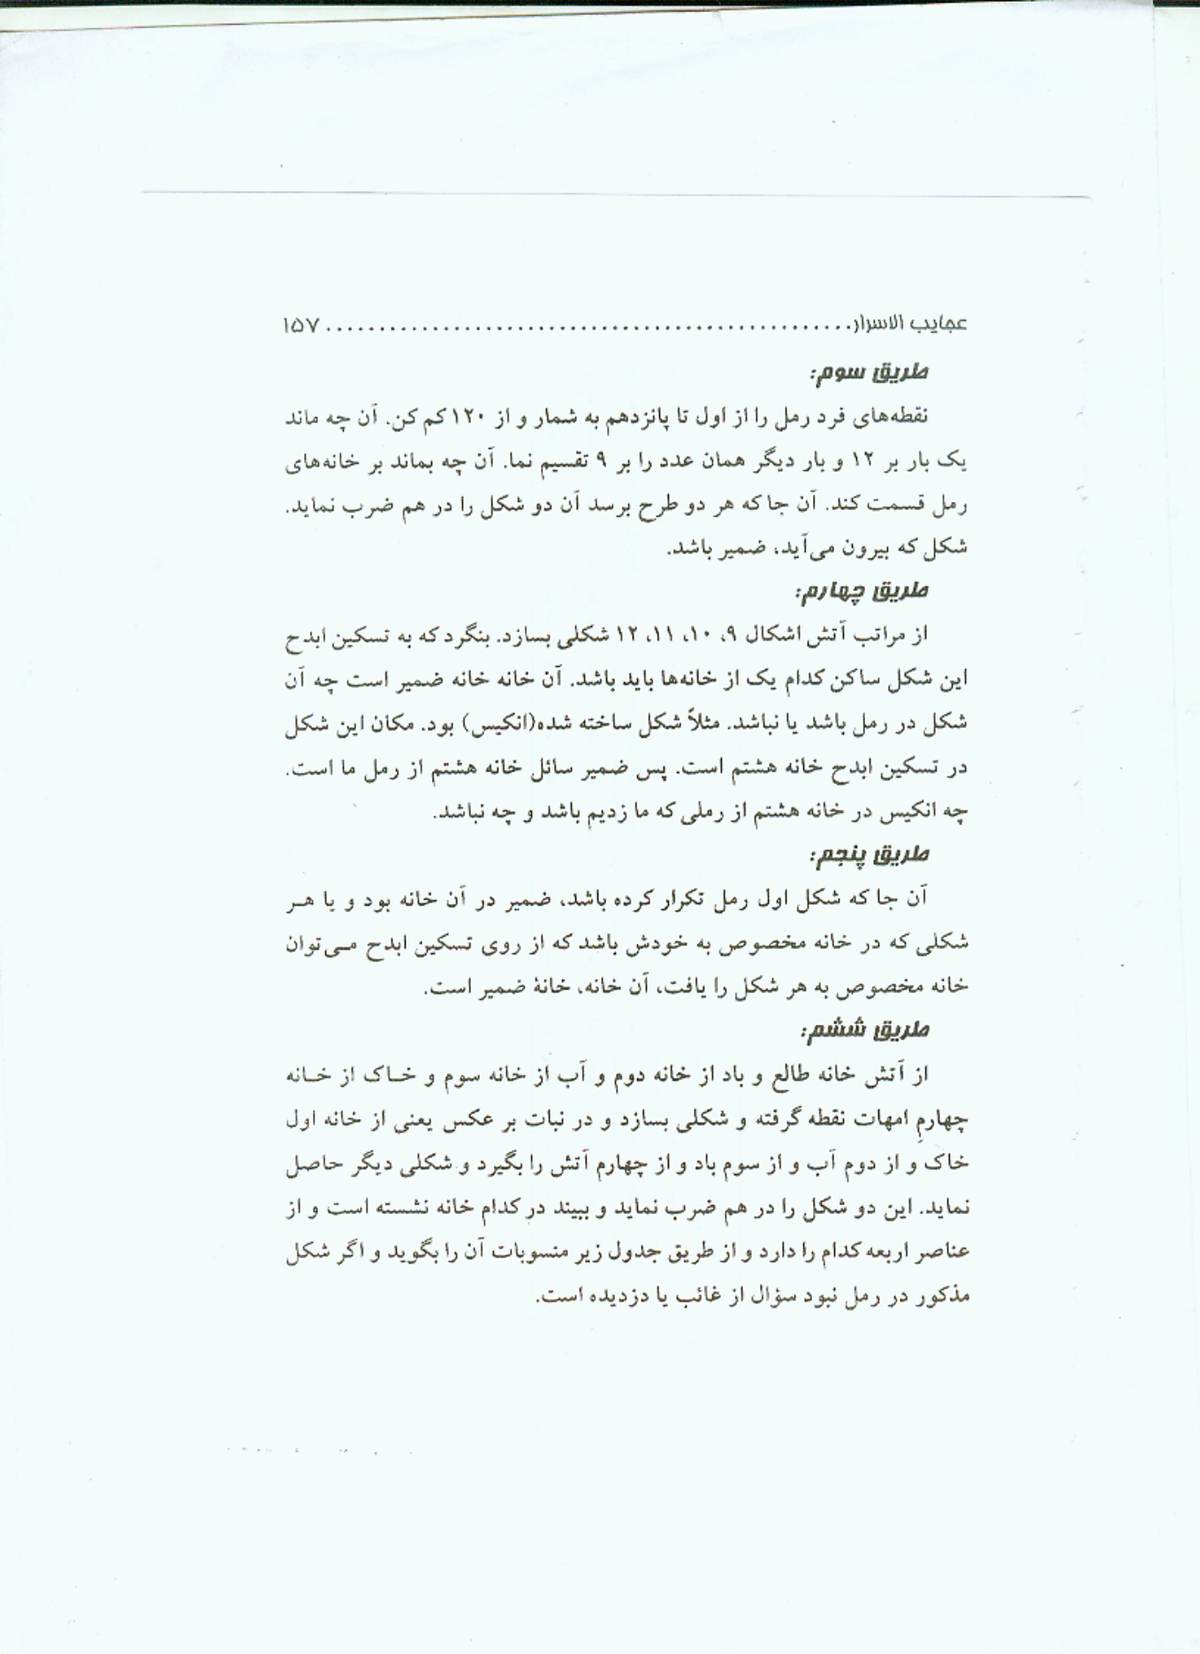 عجایب الاسرار.................................................. ۱۵۷
طریق سوم:
نقطه‌های فرد رمل را از اول تا پانزدهم به شمار و از ۱۲۰ کم کن. آن چه ماند
یک بار بر ۱۲ و بار دیگر همان عدد را بر ۹ تقسیم نما. آن چه بماند بر خانه‌های
رمل قسمت کند. آن جا که هر دو طرح برسد آن دو شکل را در هم ضرب نماید.
شکل که بیرون می‌آید، ضمیر باشد.
طریق چهارم:
از مراتب آتش اشکال ۹، ۱۰، ۱۱، ۱۲ شکلی بسازد. بنگرد که به تسکین ابدح
این شکل ساکن کدام یک از خانه‌ها باید باشد. آن خانه خانه ضمیر است چه آن
شکل در رمل باشد یا نباشد. مثلاً شکل ساخته شده(انکیس) بود. مکان این شکل
در تسکین ابدح خانه هشتم است. پس ضمیر سائل خانه هشتم از رمل ما است.
چه انکیس در خانه هشتم از رملی که ما زدیم باشد و چه نباشد.
طریق پنجم:
آن جا که شکل اول رمل تکرار کرده باشد، ضمیر در آن خانه بود و یا هـر
شکلی که در خانه مخصوص به خودش باشد که از روی تسکین ابدح مـی‌توان
خانه مخصوص به هر شکل را یافت، آن خانه، خانۀ ضمیر است.
طریق ششم:
از آتش خانه طالع و باد از خانه دوم و آب از خانه سوم و خـاک از خـانه
چهارمِ امهات نقطه گرفته و شکلی بسازد و در نبات بر عکس یعنی از خانه اول
خاک و از دوم آب و از سوم باد و از چهارم آتش را بگیرد و شکلی دیگر حاصل
نماید. این دو شکل را در هم ضرب نماید و ببیند در کدام خانه نشسته است و از
عناصر اربعه کدام را دارد و از طریق جدول زیر منسوبات آن را بگوید و اگر شکل
مذکور در رمل نبود سؤال از غائب یا دزدیده است.